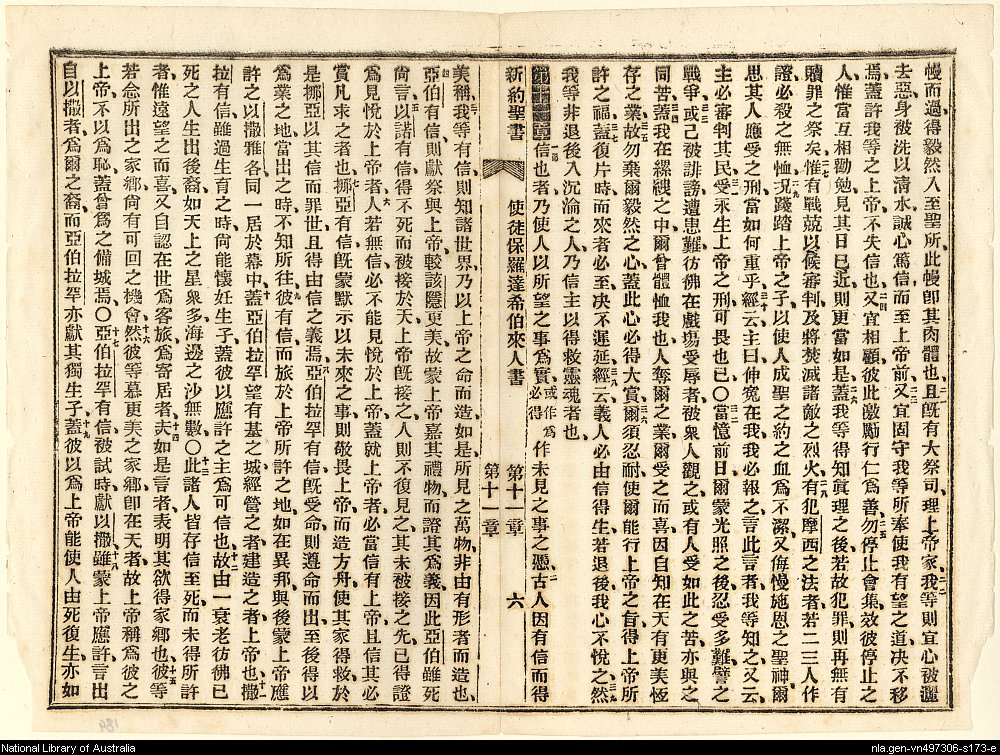 幔而過、得毅然入至聖所、此幔卽其肉體也、且旣有大祭司、理上帝家、我等則宜心被灑
去惡、身被洗以淸水、誠心篤信而至上帝前、又宜固守我等所奉使我有望之道、決不移
焉、蓋許我等之上帝不失信也、又宜相顧、彼此激勵行仁爲善、勿停止會集、效彼停止之
人、惟當互相勸勉、見其日已近、則更當如是、蓋我等得知眞理之後、若故犯罪、則再無有
贖罪之祭矣、惟有戰兢以候審判、及將焚滅諸敵之烈火、有犯摩西之法者、若二三人作
證、必殺之無恤、況踐踏上帝之子、以使人成聖之約之血爲不潔、又侮慢施恩之聖神、爾
思其人應受之刑、當如何重乎、經云、主曰、伸冤在我、我必報之、言此言者、我等知之、又云、
主必審判其民、受永生上帝之刑、可畏也已○當憶前日、爾蒙光照之後、忍受多難、譬之
戰爭、或己被誹謗、遭患難、彷彿在戲塲受辱者、被衆人觀之、或有人受如此之苦、亦與之
同苦、蓋我在縲絏之中、爾曾體恤我也、人奪爾之業、爾受之而喜、因自知在天有更美恆
存之業、故勿棄爾毅然之心、蓋此心必得大賞、爾須忍耐、使爾能行上帝之旨、得上帝所
許之福、蓋復片時、而來者必至、决不遲延、經云、義人必由信得生、若退後、我心不悅之、然
我等非退後入沉淪之人、乃信主以得救靈魂者也、
第十一章 信也者、乃使人以所望之事爲實、或作爲必得 作未見之事之憑、古人因有信而得
新約聖書 使徒保羅達希伯來人書 第十一章 六
第十一章
美稱、我等有信、則知諸世界、乃以上帝之命而造、如是所見之萬物、非由有形者而造也、
亞伯有信、則獻祭與上帝、較該隱更美、故蒙上帝嘉其禮物、而證其爲義、因此亞伯雖死
尙言、以諾有信、得不死而被接於天、上帝旣接之、人則不復見之、其未被接之先、已得證
爲見悅於上帝者、人若無信、必不能見悅於上帝、蓋就上帝者、必當信有上帝、且信其必
賞凡求之者也、挪亞有信、旣蒙默示以未來之事、則敬畏上帝而造方舟、使其家得救、於
是挪亞以其信而罪世、且得由信之義焉、亞伯拉罕有信、旣受命、則遵命而出、至後得以
爲業之地、當出之時、不知所往、彼有信而旅於上帝所許之地、如在異邦、與後蒙上帝應
許之以撒雅各、同一居於幕中、蓋亞伯拉罕望有基之城、經營之者、建造之者、上帝也、撒
拉有信、雖過生育之時、尙能懷妊生子、蓋彼以應許之主爲可信也、故由一衰老彷彿已
死之人、生出後裔、如天上之星衆多、海邊之沙無數○此諸人皆存信至死、而未得所許
者、惟遠望之而喜、又自認在世爲客旅、爲寄居者、夫如是言者、表明其欲得家鄕也、彼等
若念所出之家鄕、尙有可回之機會、然彼等慕更美之家鄕、卽在天者、故上帝稱爲彼之
上帝、不以爲恥、蓋曾爲之備城焉○亞伯拉罕有信、被試時獻以撒、雖蒙上帝應許、言出
自以撒者、爲爾之裔、而亞伯拉罕亦獻其獨生子、蓋彼以爲上帝能使人由死復生、亦如
184
National Library of Australia
nla.gen-vn497306-s173-e